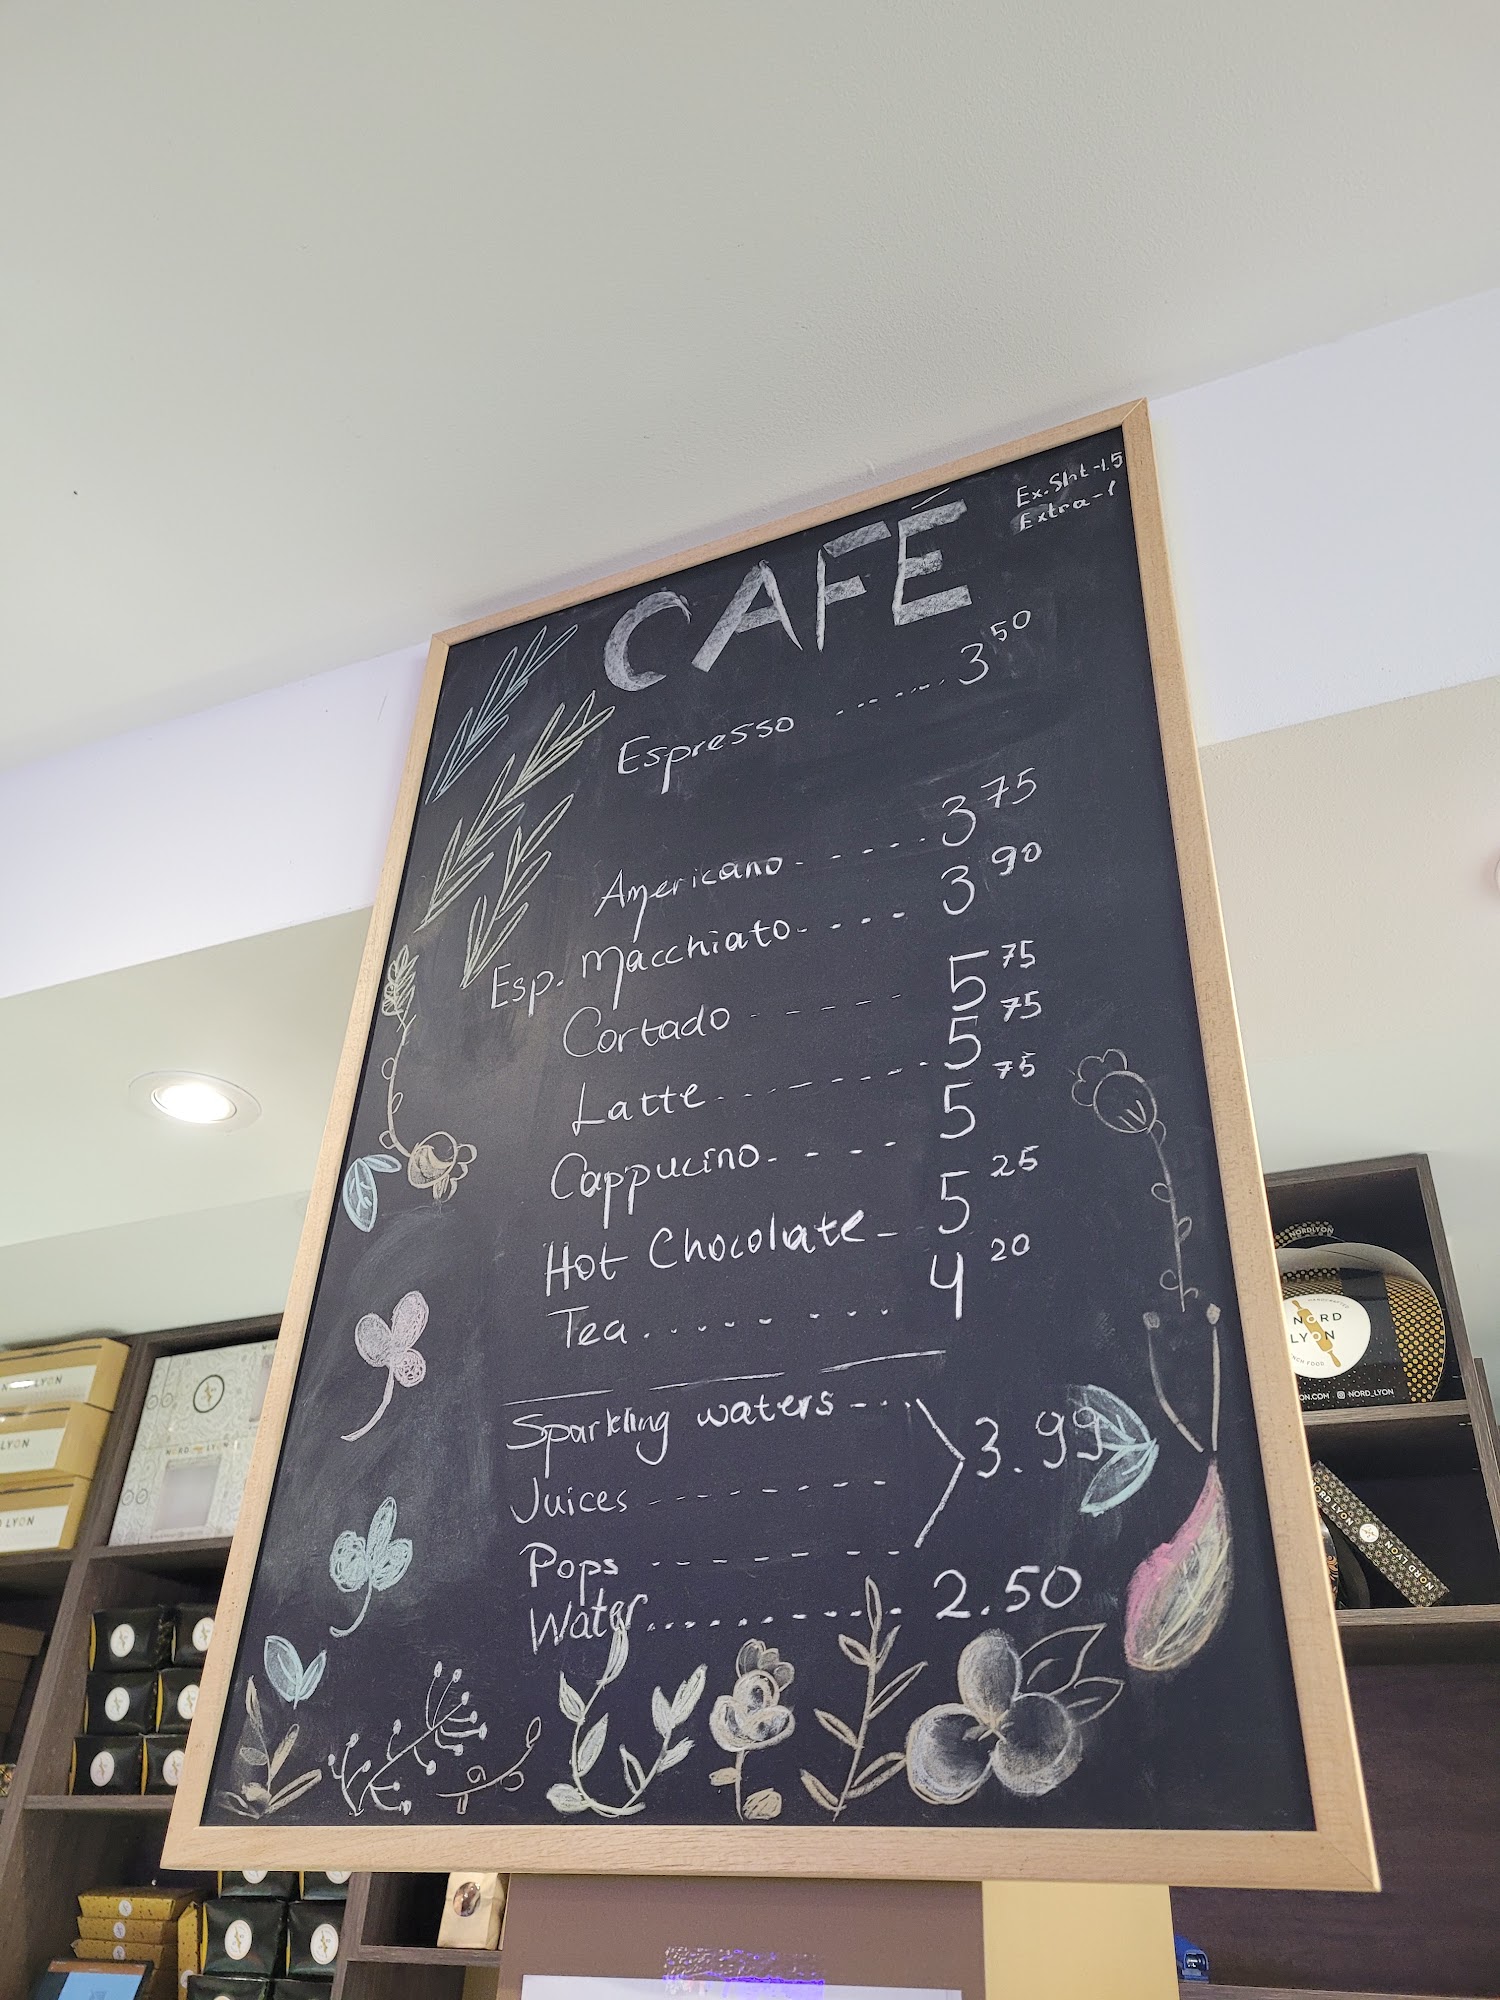 Ex.Sht-1.5
Extra-1
CAFÉ
Espresso ....... 3 50
Americano - - - - - 3 75
Esp. Macchiato - - - - 3 90
Cortado - - - - - 5 75
Latte - - - - - - - - 5 75
Cappucino - - - - 5 75
Hot Chocolate - 5 25
Tea . . . . - - . . . 4 20
Sparkling waters - - -
Juices - - - - - - - -
3.99
Pops - - - - - - -
Water ............ 2.50
NORDLYON
HANDCRAFTED
NORD
LYON
NCH FOOD
ON.COM NORD_LYON
NORD LYON
NORD LYON
NORD LYON
LYON
LYON
NORD LYON